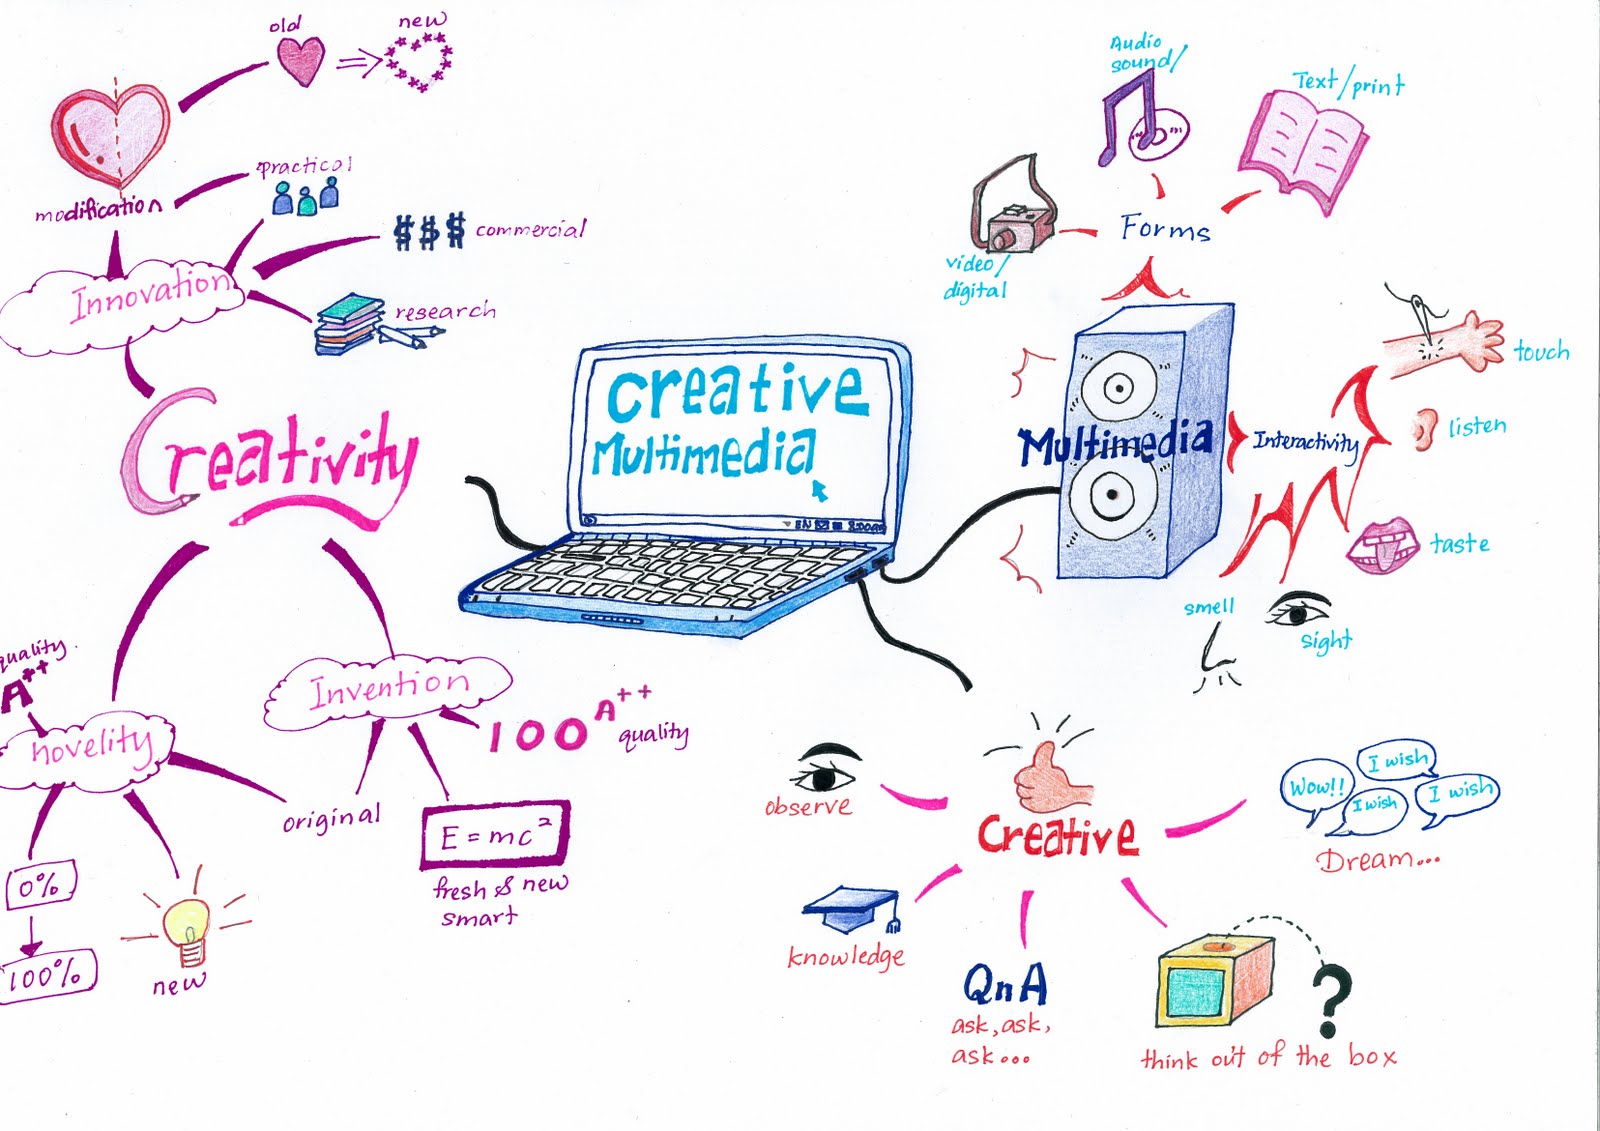 old
new
modification
practical
$$$ commercial
Innovation
research
Creativity
quality
A++
novelity
Invention
100 A++
quality
original
E = mc²
fresh & new
smart
0%
100%
new
creative
Multimedia
Audio
sound/
Text/print
Forms
video/
digital
Multimedia
Interactivity
touch
listen
taste
smell
sight
observe
Creative
Wow!!
I wish
I wish
I wish
Dream...
knowledge
QnA
ask, ask,
ask...
?
think out of the box